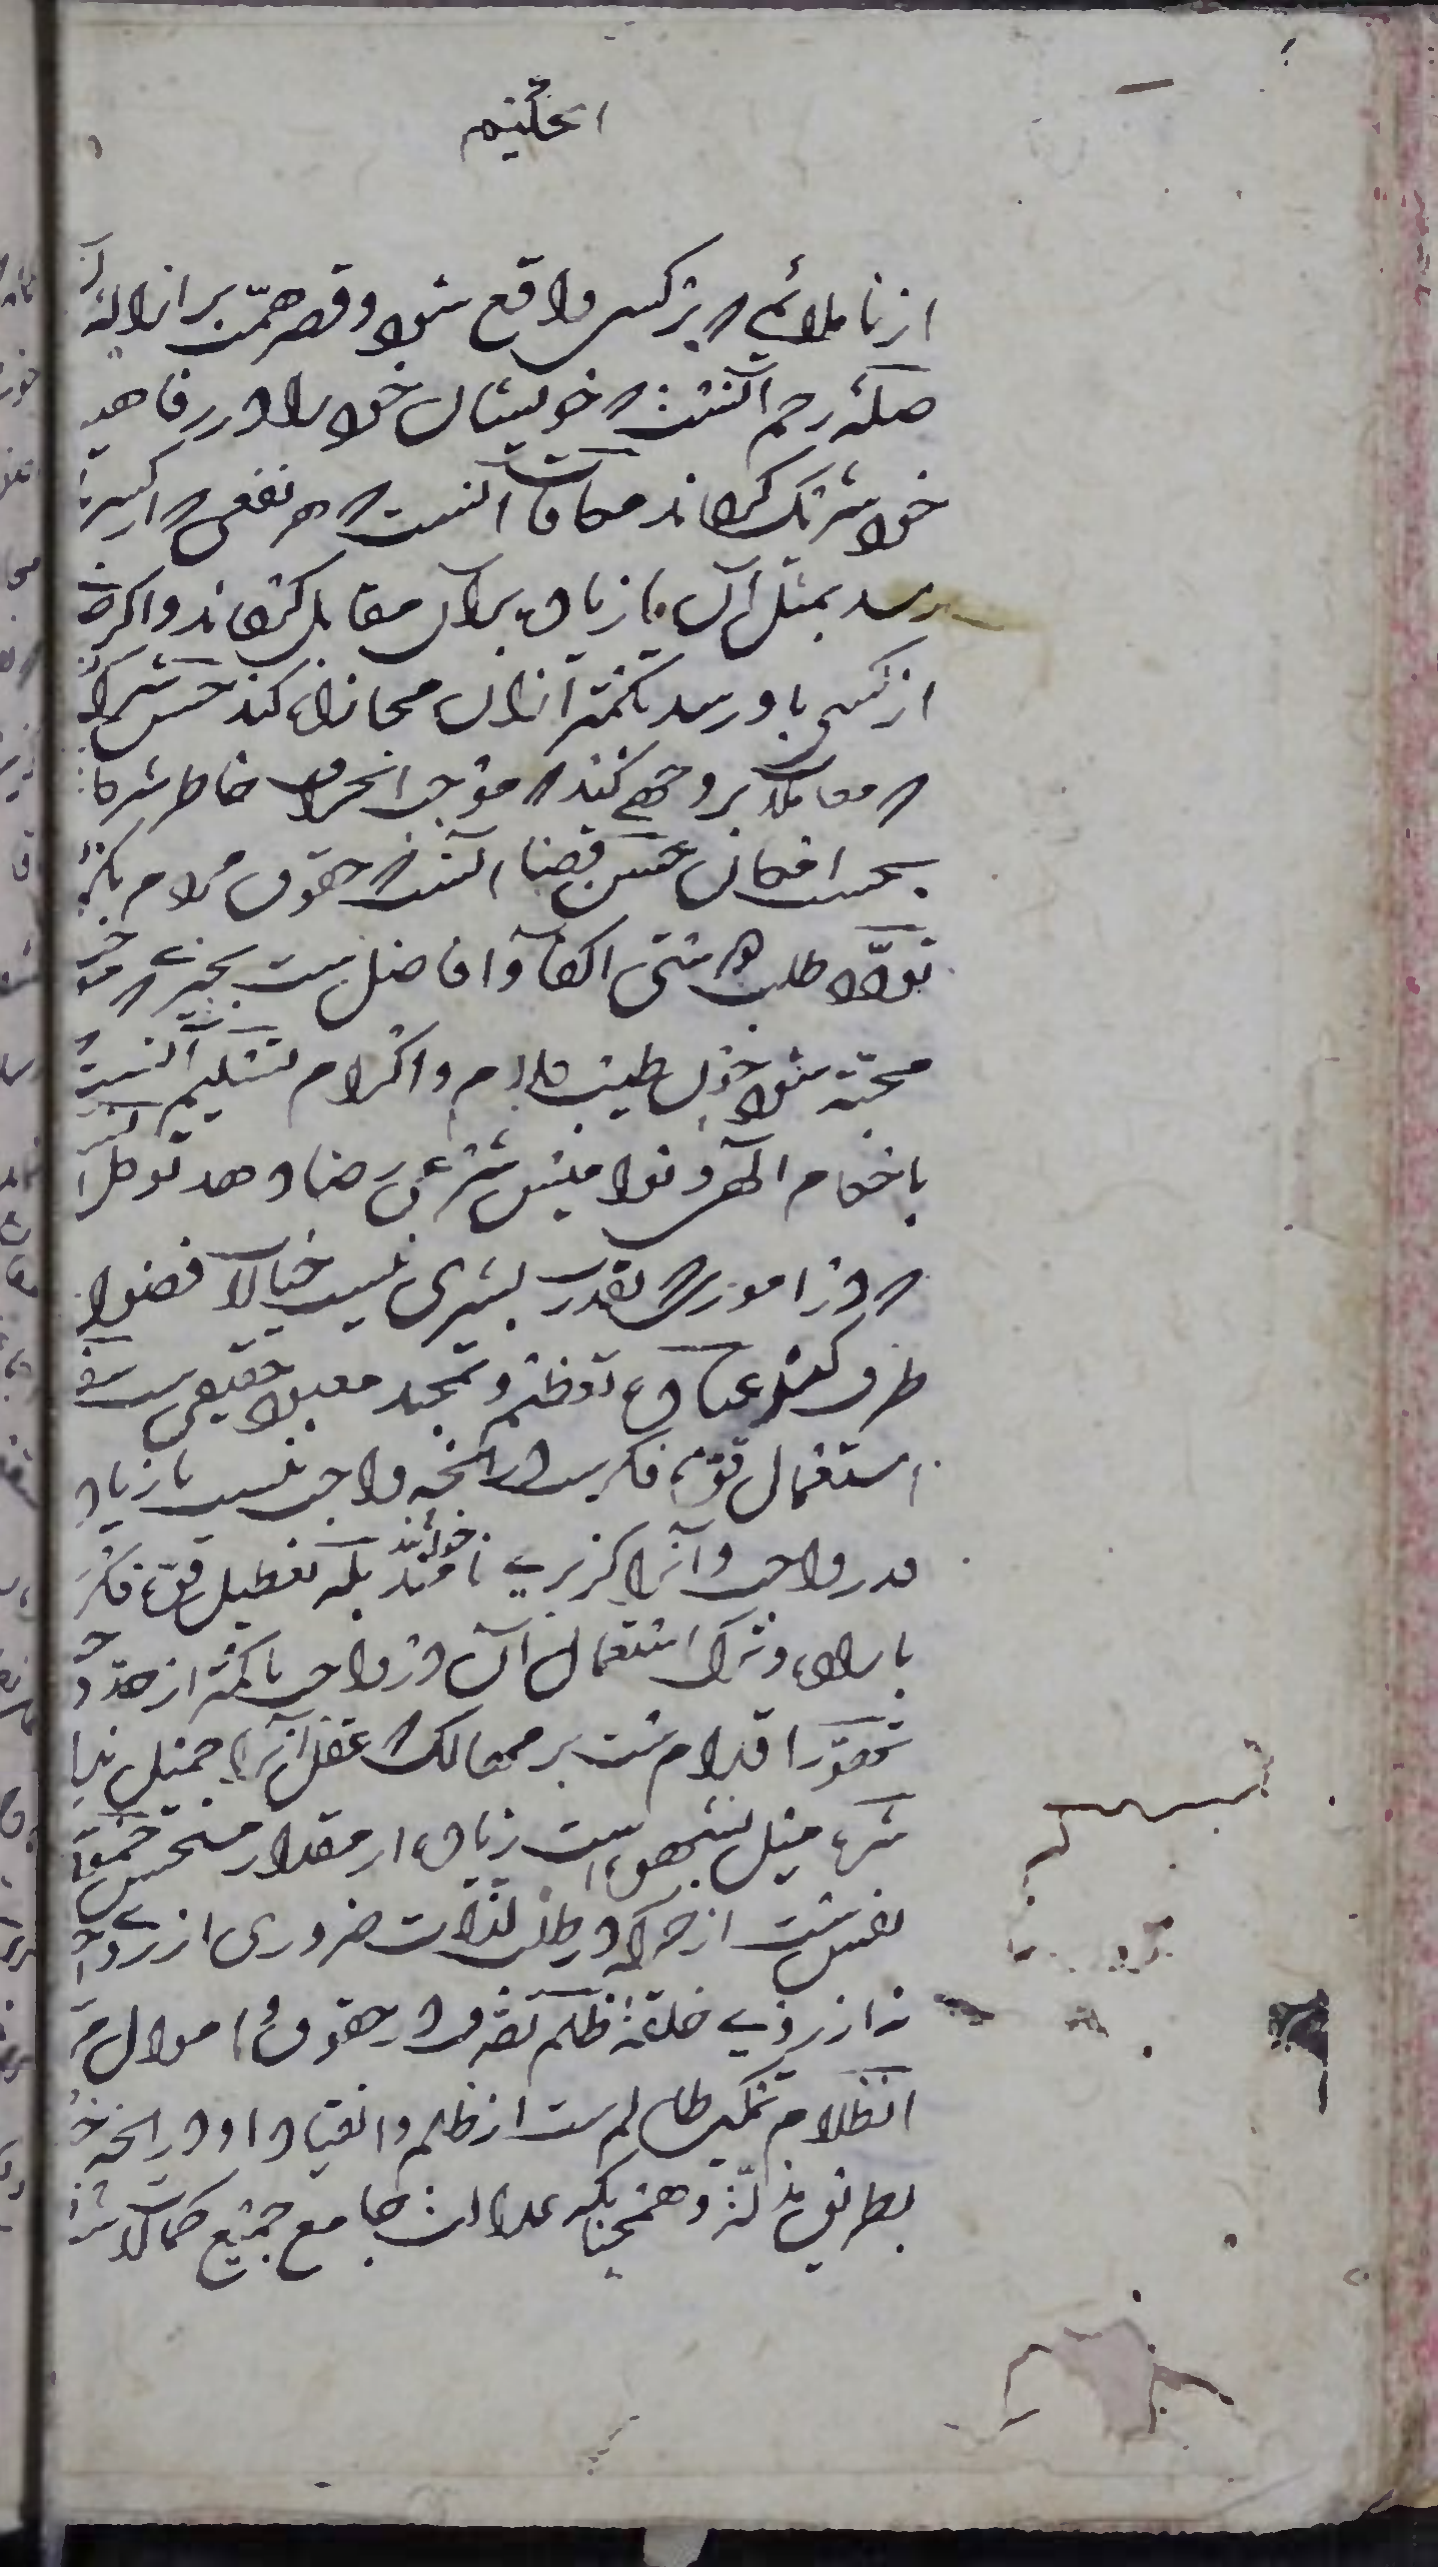 از ناملائمی که بر کسی واقع شود و قصر همت بر ازاله
صله رحم آنست که خویشان خود را در رفاهیت
خود شریک گرداند مکافات آنست که هر نفعی که از کسی
رسد بمثل آن یا زیاده بر آن مقابل گرداند و اگر
از کسی باو رسد بکمتر از آن مجازاة کند حسن شرکة
که معاملات بر وجهی کند که موجب انحراف خاطر شرکا
بحسب امکان حسن قضا آنست که حقوق مردم
تودد طلب دوستی اکفا و افاضل ست بچیزے که
محبت شود چون طیب کلام و اکرام تسلیم آنست
باحکام الهی و نوامیس شرعی رضا دهد توکل
که در اموری که بقدرت بشری نیست خیالات فضول
طرف کند عبادة تعظیم و تمجید معبود حقیقی ست
استعمال قوة فکریست در آنچه واجب نیست یا زیاده
قدر واجب و آنرا گربزے نامند خوانند بله تعطیل قوة فکر
باراده و ترک استعمال آن در واجب یا کمتر از حد
تهور اقدام ست بر مهالک که عقل آنرا جمیل نداند
شره میل بشهوة است زیاده از مقدار مستحسن خمود
نفس ست از حرکة در طلب لذات ضروری از روے
نه از روے خلقة ظلم تصرف در حقوق و اموال
انظلام تمکین ظالم ست از ظلم و انقیاد او در آنچه
بطریق مذلة و همچنانکه عدالت جامع جمیع کمالات